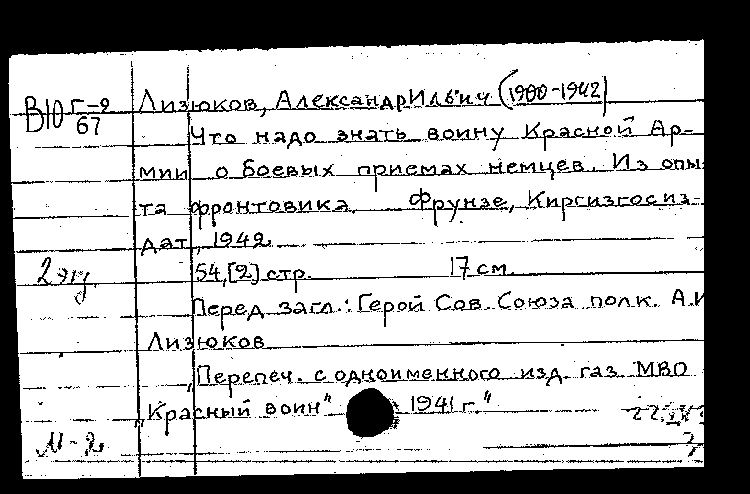 В10 Г-2
67
Лизюков, Александр Ильич (1900-1942)
Что надо знать воину Красной Ар-
мии о боевых приемах немцев. Из опы-
та фронтовика. Фрунзе, Киргизгосиз-
дат, 1942.
2 экз.
54,[2] стр. 17 см.
Перед загл.: Герой Сов. Союза полк. А.И
Лизюков
„Перепеч. с одноименного изд. газ. МВО
„Красный воин" 1941 г."
М-2